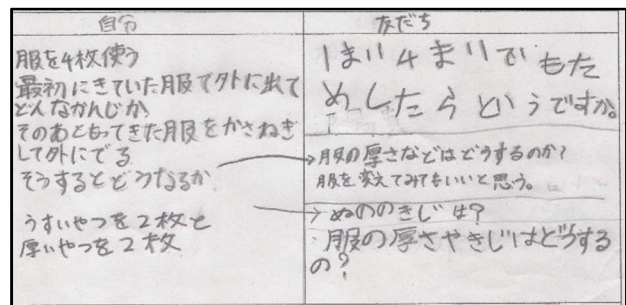 自分
服を4枚使う
最初にきていた服で外に出て
どんなかんじか
そのあともってきた服をかさねぎ
して外にでる
そうするとどうなるか
うすいやつを2枚と
厚いやつを2枚
友だち
1まい4まいでもた
めしたらどうですか。
服の厚さなどはどうするのか?
服を変えてみてもいいと思う。
ぬののきじは?
服の厚さやきじはどうする
の?